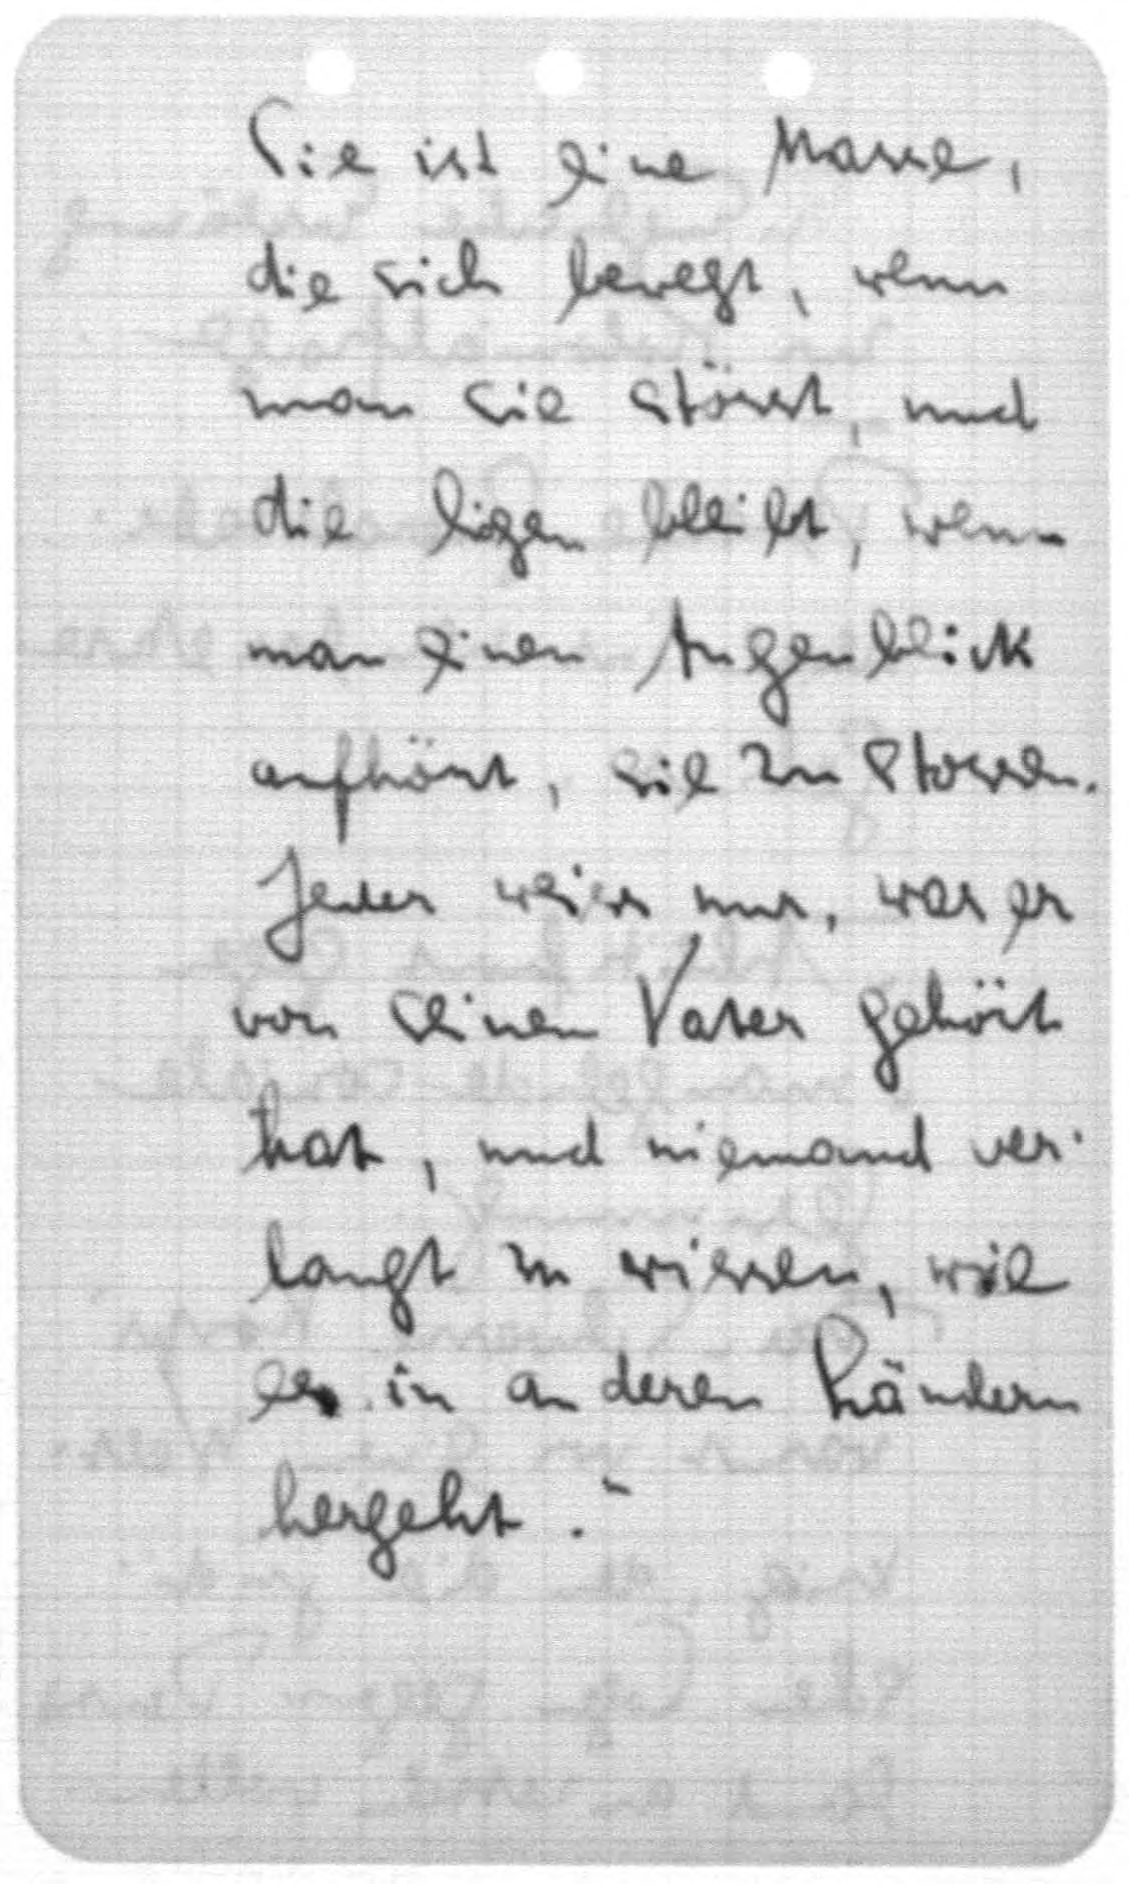 Sie ist eine Masse,
die sich bewegt, wenn
man sie stösst, und
die ligen bleibt, wenn
man einen Augenblick
aufhört, sie zu stossen.
Jeder weiss nur, was er
von seinem Vater gehört
hat, und niemand ver-
langt zu wissen, wie
es in anderen Ländern
hergeht."